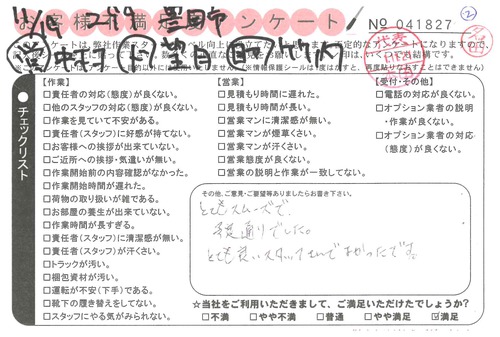 お客様不満足度アンケート! No 041827 ②
【作業】
□責任者の対応(態度)が良くない。
□他のスタッフの対応(態度)が良くない。
□作業を見ていて不安がある。
□責任者(スタッフ)に好感が持てない。
□お客様への挨拶が出来ていない。
□ご近所への挨拶・気遣いが無い。
□作業開始前の内容確認がなかった。
□作業開始時間が遅れた。
□荷物の取り扱いが雑である。
□お部屋の養生が出来ていない。
□作業時間が長すぎる。
□責任者(スタッフ)に清潔感が無い。
□責任者(スタッフ)が汗くさい。
□トラックが汚い。
□梱包資材が汚い。
□運転が不安(下手)である。
□靴下の履き替えをしてない。
□スタッフにやる気がみられない。
【営業】
□見積もり時間に遅れた。
□見積もり時間が長い。
□営業マンに清潔感が無い。
□営業マンが煙草くさい。
□営業マンが汗くさい。
□営業態度が良くない。
□営業の説明と作業が一致してない。
【受付・その他】
□電話の対応が良くない。
□オプション業者の説明
・作業が良くない。
□オプション業者の対応
(態度)が良くない。
チェックリスト
その他、ご意見・ご要望等ありましたらお書き下さい。
とてもスムーズで、
予定通りでした。
とても良いスタッフさんでよかったです。
☆当社をご利用いただきまして、ご満足いただけたでしょうか?
□不満 □やや不満 □普通 □やや満足 ☑満足